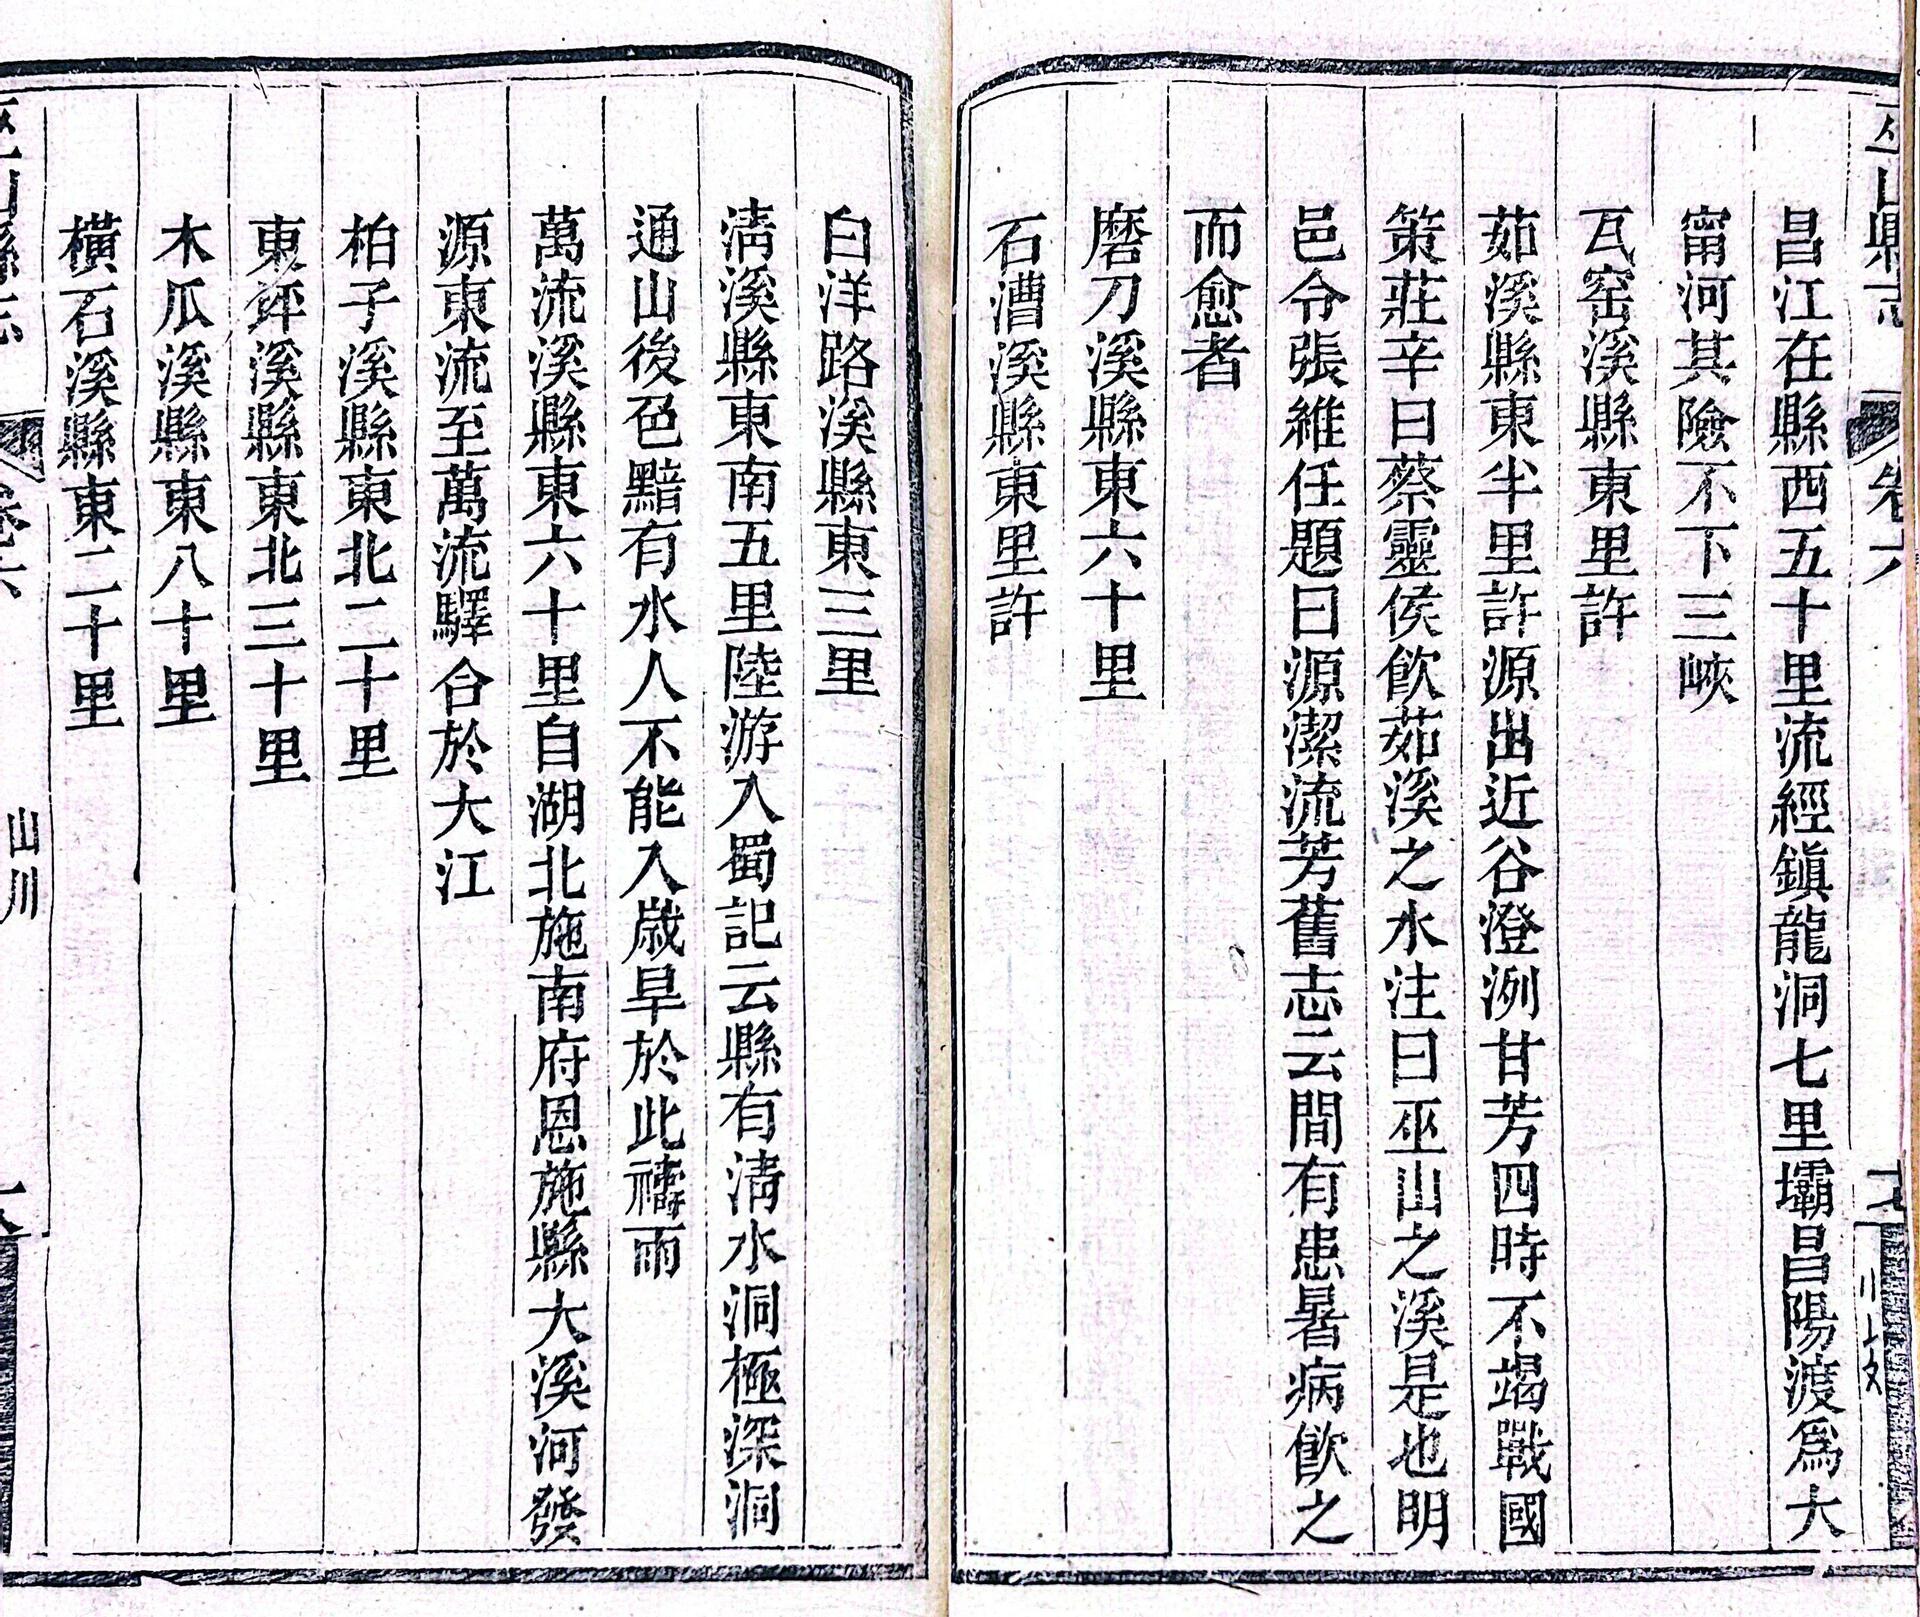 巫山縣志 卷六
昌江在縣西五十里流經鎮龍洞七里壩昌陽渡爲大
甯河其險不下三峽
瓦窑溪縣東里許
茹溪縣東半里許源出近谷澄洌甘芳四時不竭戰國
策莊辛曰蔡靈侯飮茹溪之水注曰巫山之溪是也明
邑令張維任題曰源潔流芳舊志云間有患暑病飮之
而愈者
磨刀溪縣東六十里
石漕溪縣東里許
白洋路溪縣東三里
淸溪縣東南五里陸游入蜀記云縣有淸水洞極深洞
通山後色黯有水人不能入歲旱於此禱雨
萬流溪縣東六十里自湖北施南府恩施縣大溪河發
源東流至萬流驛合於大江
柏子溪縣東北二十里
東坪溪縣東北三十里
木瓜溪縣東八十里
橫石溪縣東二十里
巫山縣志 卷六 山川